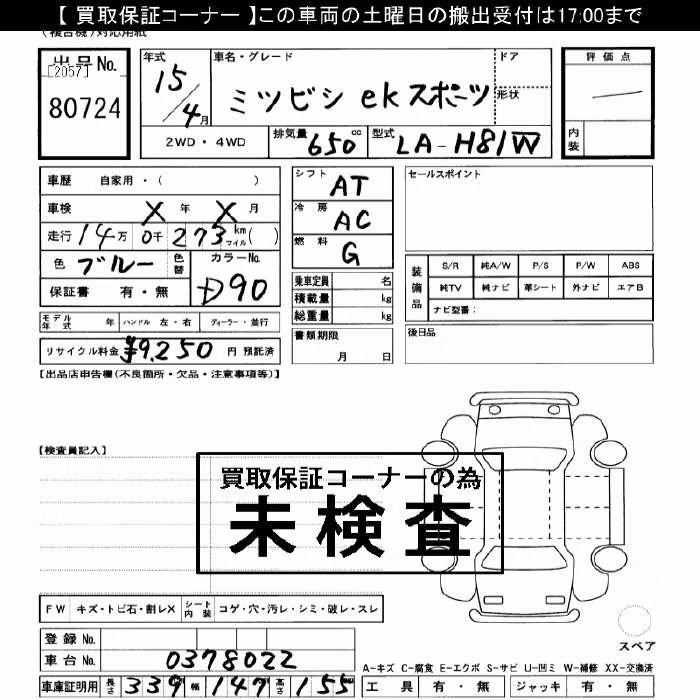 【 買取保証コーナー 】この車両の土曜日の搬出受付は17:00まで
(複合機)対応用紙
出品No.
[2057]
80724
年式
15/4月
車名・グレード
ミツビシ ekスポーツ
ドア
形状
2WD・4WD
排気量 650cc
型式 LA-H81W
評価点
内装
車歴 自家用・( )
車検 X年 X月
走行 14万 0千 273 km マイル( )
色 ブルー 色替
カラーNo.
D90
保証書 有・無
モデル年式 年 ハンドル 左・右 ディーラー・並行
リサイクル料金 ¥9,250 円 預託済
シフト AT
冷房 AC
燃料 G
乗車定員 名
積載量 kg
総重量 kg
書類期限
月 日
セールスポイント
装備品
S/R 純A/W P/S P/W ABS
純TV 純ナビ 革シート 外ナビ エアB
ナビ型番:
後日品
【出品店申告欄(不良箇所・欠品・注意事項等)】
【検査員記入】
買取保証コーナーの為
未検査
FW キズ・トビ石・割レX シート内装 コゲ・穴・汚レ・シミ・破レ・スレ
登録No.
車台No. 0378022
車庫証明用 長さ 339 幅 147 高さ 155
スペア
A-キズ C-腐食 E-エクボ S-サビ U-凹ミ W-補修 XX-交換済
工具 有・無 ジャッキ 有・無